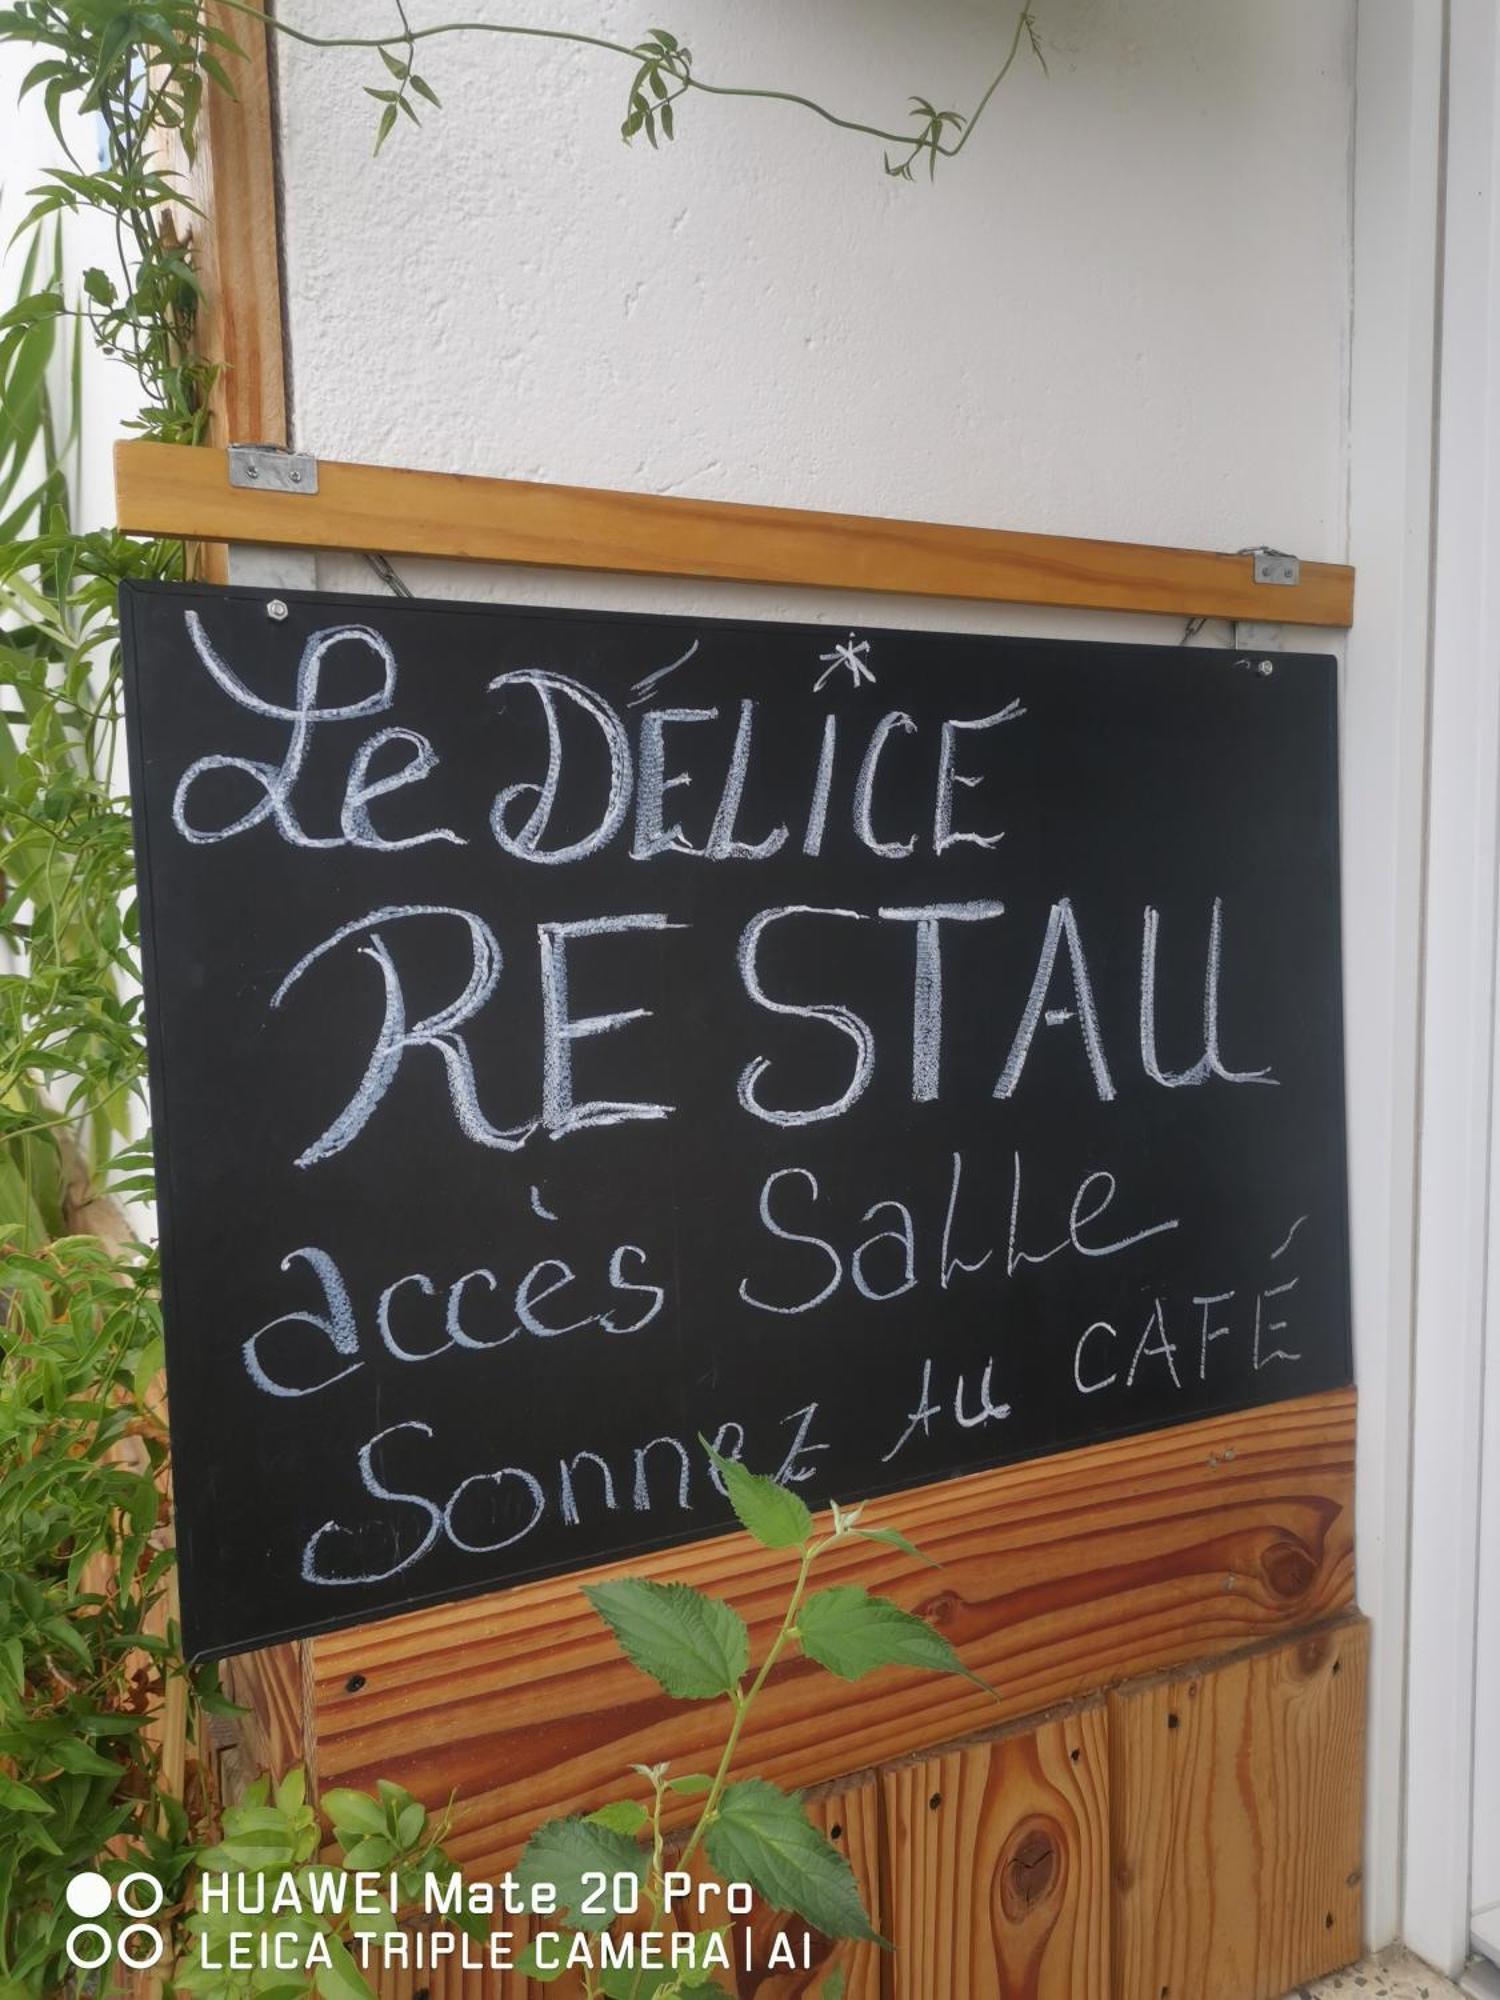 Le DÉLICE
RESTAU
accès Salle
Sonnez AU CAFÉ
HUAWEI Mate 20 Pro
LEICA TRIPLE CAMERA | AI